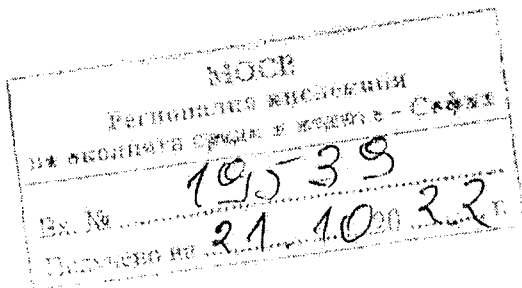 МОСВ
Регионална инспекция
на околната среда и водите - София
Вх. № 19539
Получено на 21.10 20 22 г.